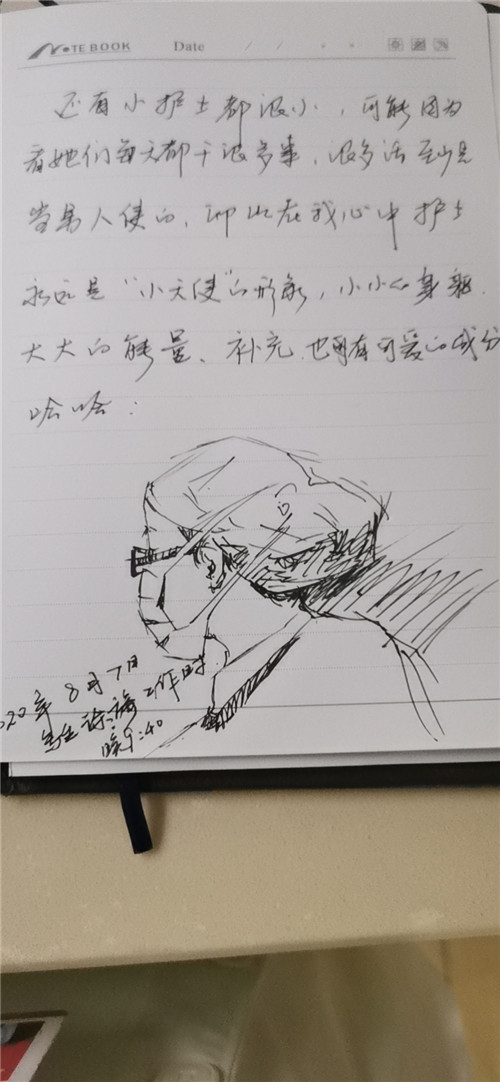 NOTEBOOK Date / /
还有小护士都很小，可能因为
看她们每天都干很多事，很多活至少是
当男人使的，即此在我心中护士
永远是“小天使”的形象，小小的身躯，
大大的能量、补充，也有可爱的成分
哈哈：
2022年8月7日
工作时
晚9:40